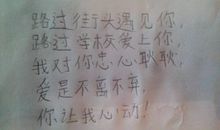 路过街头遇见你,
路过学校爱上你,
我对你忠心耿耿,
爱是不离不弃,
你让我心动!